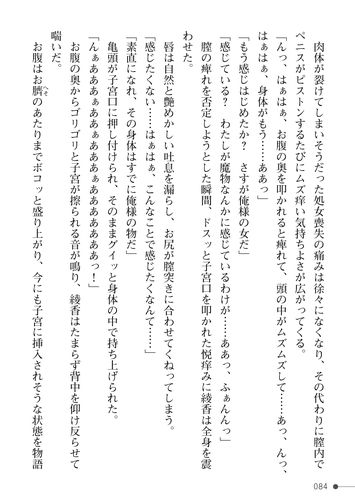 肉体が裂けてしまいそうだった処女喪失の痛みは徐々になくなり、その代わりに膣内で
ペニスがピストンするたびにムズ痒い気持ちよさが広がってくる。
「んっ、はぁはぁ、お腹の奥を叩かれると痺れて、頭の中がムズムズして……あっ、んっ、
はぁはぁ、身体がもう……ああっ」
「もう感じはじめたか？　さすが俺様の女だ」
「感じている？　わたしが魔物なんかに感じているわけが……ああっ、ふぁんんっ」
膣の痺れを否定しようとした瞬間、ドスッと子宮口を叩かれた悦痒みに綾香は全身を震
わせた。
唇は自然と艶めかしい吐息を漏らし、お尻が膣突きに合わせてくねってしまう。
「感じたくない……はぁはぁ、こんなことで感じたくなんて……」
「素直になれ、その身体はすでに俺様の物だ」
亀頭が子宮口に押し付けられ、そのままグイッと身体の中で持ち上げられた。
「んぁああああぁぁあああぁああああああっ！」
お腹の奥からゴリゴリと子宮が擦られる音が鳴り、綾香はたまらず背中を仰け反らせて
喘いだ。
お腹はお臍のあたりまでボコッと盛り上がり、今にも子宮に挿入されそうな状態を物語
へそ
084